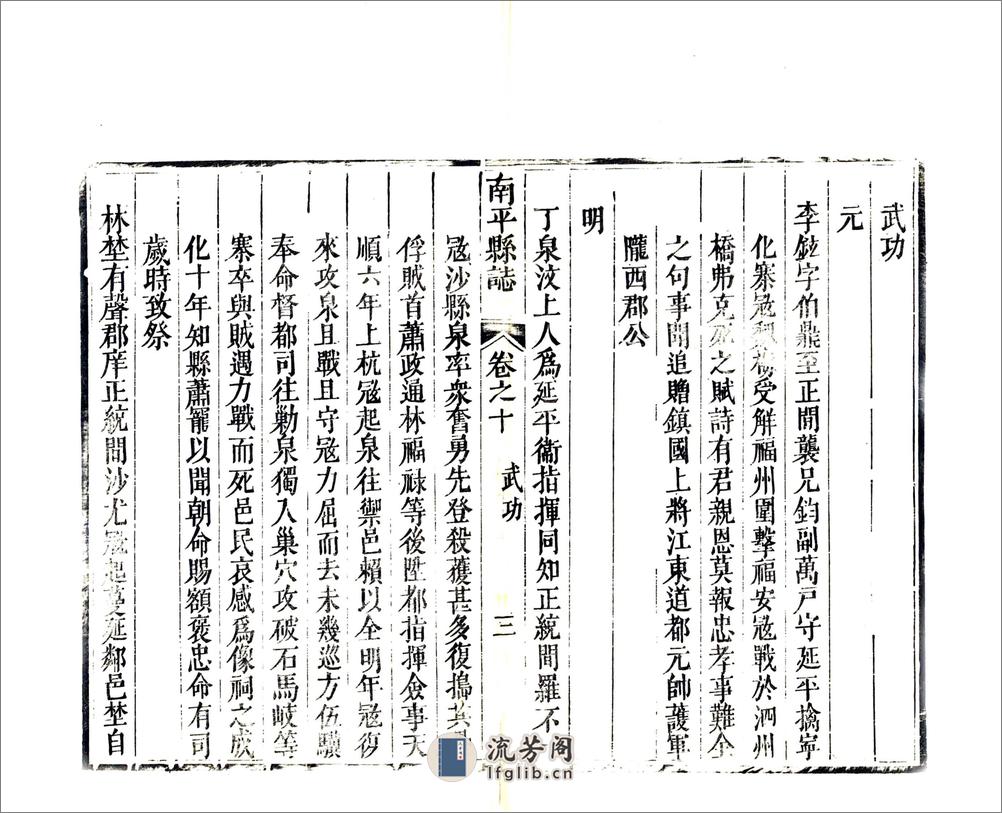 武功
元
李鉉字伯鼎至正間襲兄鈞副萬戸守延平擒寧
化寨冦 受解福州圍擊福安冦戰於泗州
橋弗克死之賦詩有君親恩莫報忠孝事難全
之句事聞追贈鎮國上將江東道都元帥護軍
隴西郡公
明
丁泉汶上人爲延平衞指揮同知正統間羅不
南平縣誌 卷之十 武功 三
冦沙縣泉率衆奮勇先登殺獲甚多復搗其
俘賊首蕭政通林福禄等後陞都指揮僉事天
順六年上杭冦起泉往禦邑賴以全明年冦復
來攻泉且戰且守冦力屈而去未幾巡方伍驥
奉命督都司往勦泉獨入巢穴攻破石馬岐等
寨卒與賊遇力戰而死邑民哀感爲像祠之成
化十年知縣蕭寵以聞朝命賜額褒忠命有司
歲時致祭
林埜有聲郡庠正統間沙尤冦起蔓延鄰邑埜自
流芳阁
lfglib.cn